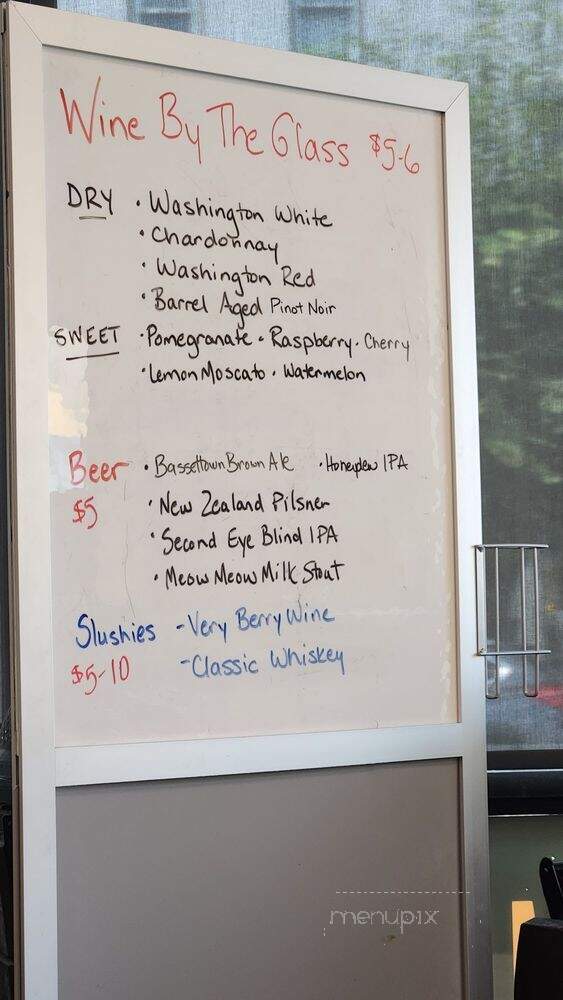 Wine By The Glass $5-6
DRY • Washington White
• Chardonnay
• Washington Red
• Barrel Aged Pinot Noir
SWEET • Pomegranate • Raspberry • Cherry
• Lemon Moscato • Watermelon
Beer • Bassettown Brown Ale • Honeydew IPA
$5 • New Zealand Pilsner
• Second Eye Blind IPA
• Meow Meow Milk Stout
Slushies - Very Berry Wine
$5-10 - Classic Whiskey
menupix